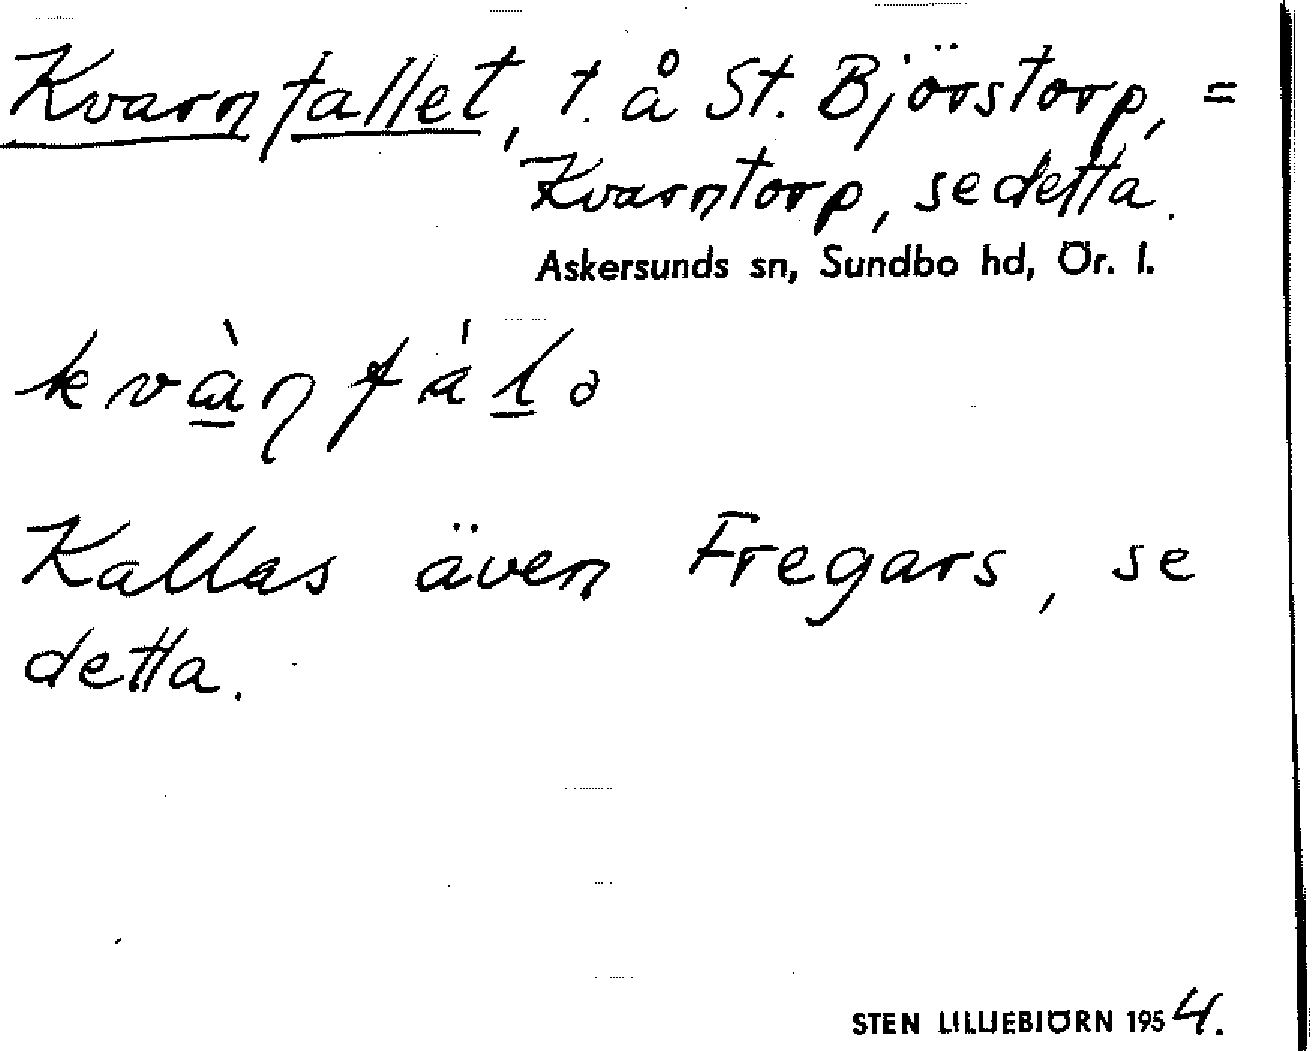 Kvarnfallet, t. å St. Björstorp, =
Kvarntorp, se detta.
Askersunds sn, Sundbo hd, Ör. l.
Kallas även Fregars, se
detta.
STEN LILLIEBJÖRN 1954.